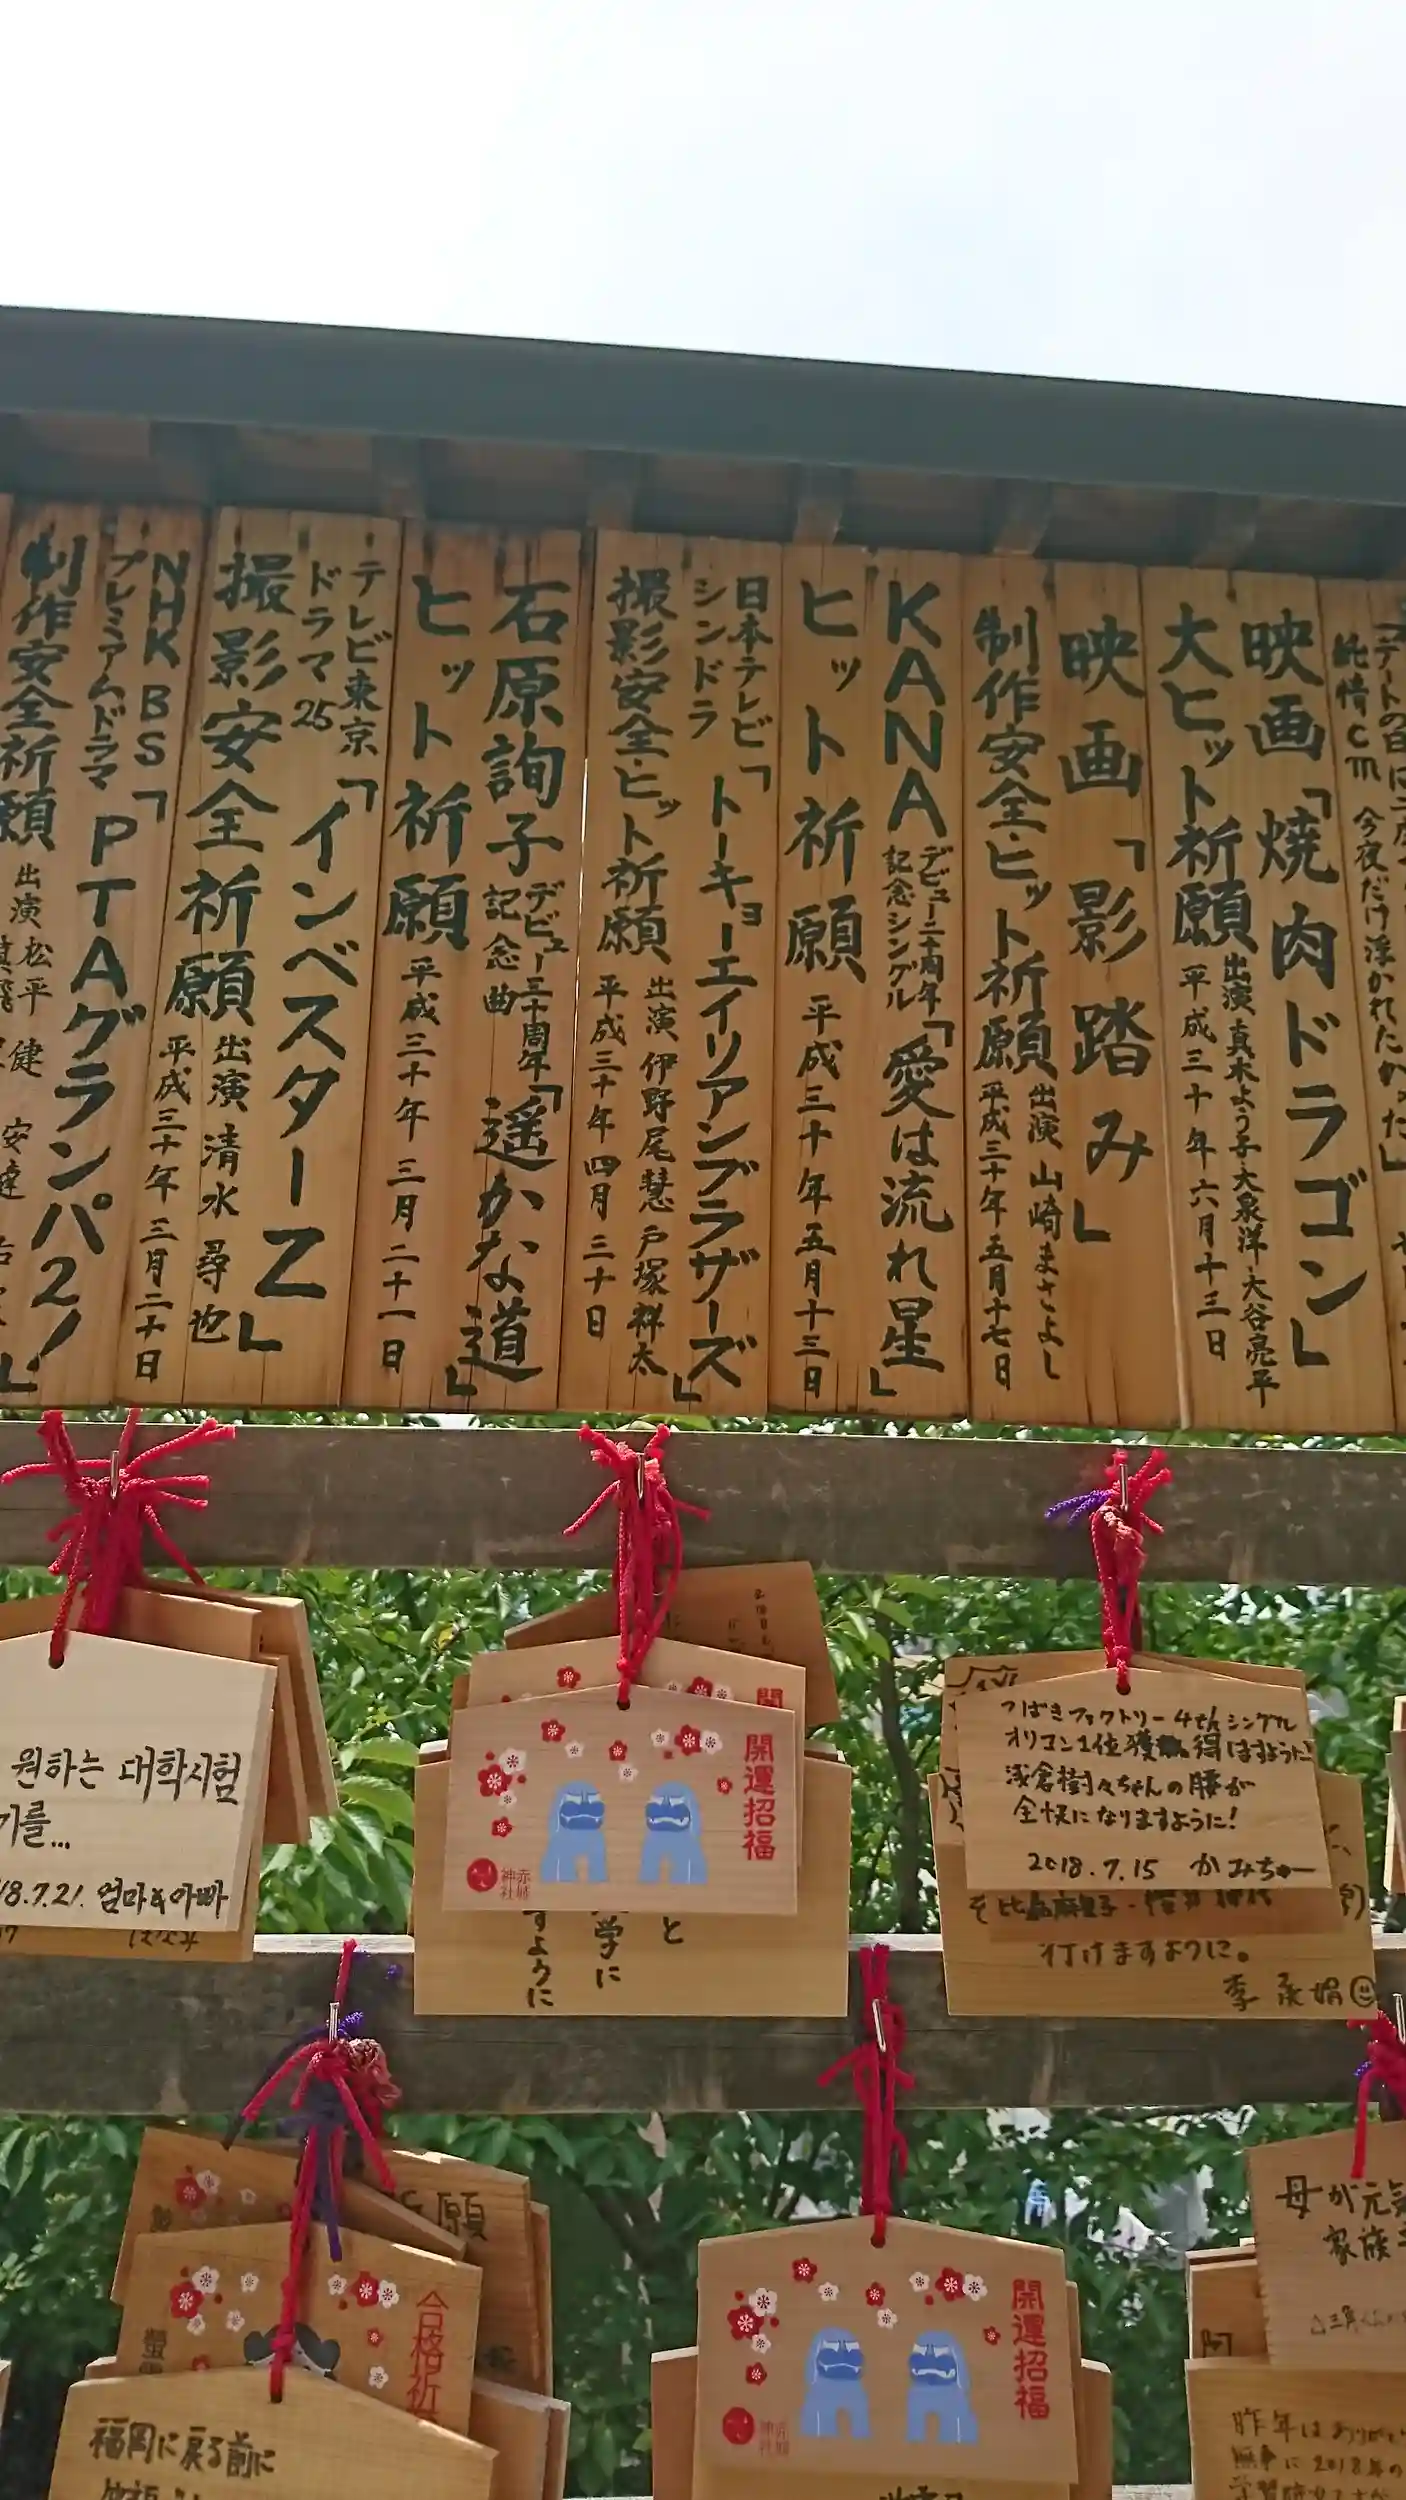 今夜だけ浮かれたかった」
映画「焼肉ドラゴン」
大ヒット祈願
出演 真木よう子 大泉洋 大谷亮平
平成三十年六月十三日
映画「影踏み」
制作安全・ヒット祈願
出演 山崎まさよし
平成三十年五月十七日
KANA デビュー二十周年
記念シングル「愛は流れ星」
ヒット祈願 平成三十年五月十三日
日本テレビ
シンドラ「トーキョーエイリアンブラザーズ」
撮影安全・ヒット祈願
出演 伊野尾慧 戸塚祥太
平成三十年四月三十日
石原詢子 デビュー三十周年
記念曲「遥かな道」
ヒット祈願 平成三十年三月二十一日
テレビ東京
ドラマ25「インベスターZ」
撮影安全祈願
出演 清水尋也
平成三十年三月二十日
NHK BS
プレミアムドラマ「PTAグランパ2!」
制作安全祈願
出演 松平 健
安達
원하는 대학시험
기를...
18.7.21. 엄마&아빠
開運招福
赤城
神社
学に
と
すように
つばきファクトリー4thシングル
オリコン1位獲得はますように!
浅倉樹々ちゃんの腰が
全快になりますように!
2018.7.15 かみちゅー
行けますように。
李承娟
願
合格祈
福岡に戻る前に
開運招福
母が元気
家族
昨年はありがとう
無事に2018年の